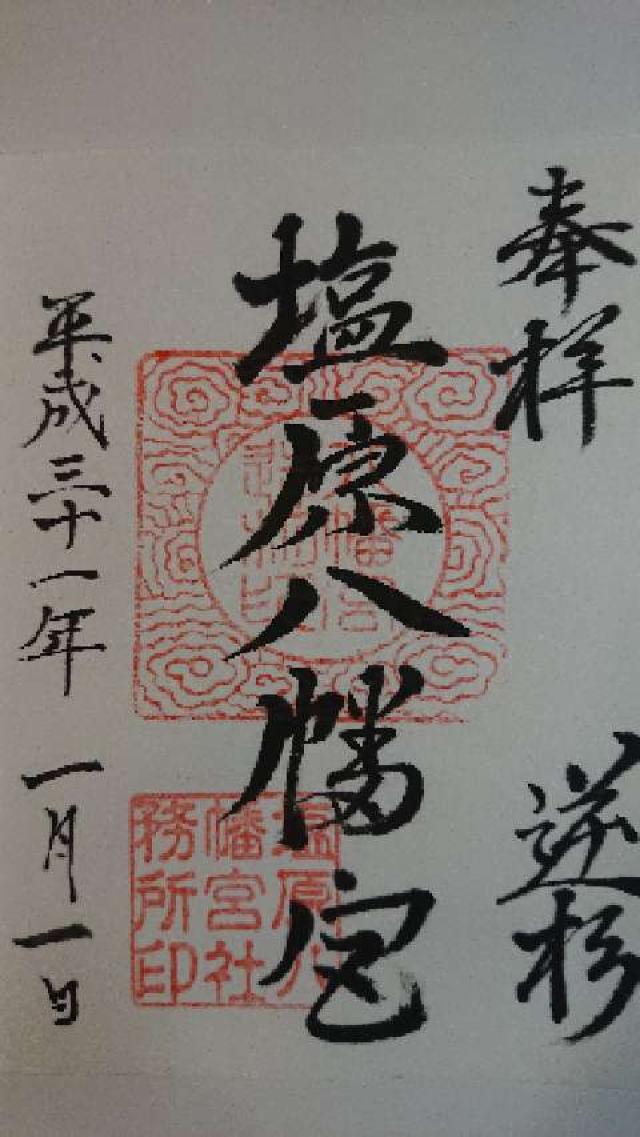 奉拝
逆杉
塩原八幡宮
塩原八
幡宮社
務所印
平成三十一年 一月一日